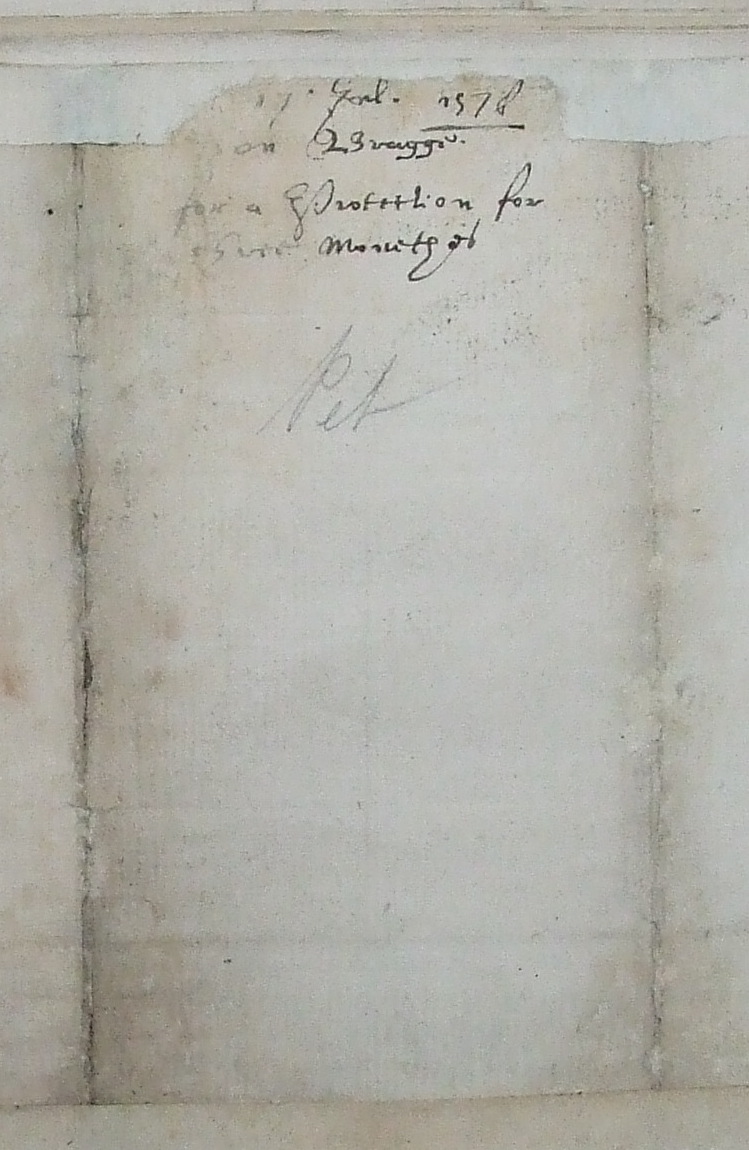 17. 1578
on Bragge.
for a Protection for
Monethes
Pet